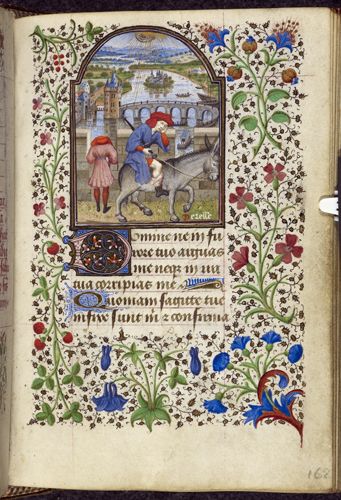 Domine ne in fu
rore tuo arguas
me neq in ira
tua corripias me
Quoniam sagitte tue
infixe sunt m ⁊ confirma